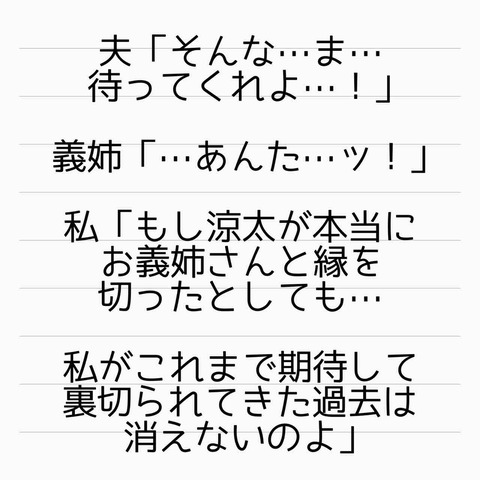 夫「そんな…ま…
待ってくれよ…！」
義姉「…あんた…ッ！」
私「もし涼太が本当に
お義姉さんと縁を
切ったとしても…
私がこれまで期待して
裏切られてきた過去は
消えないのよ」